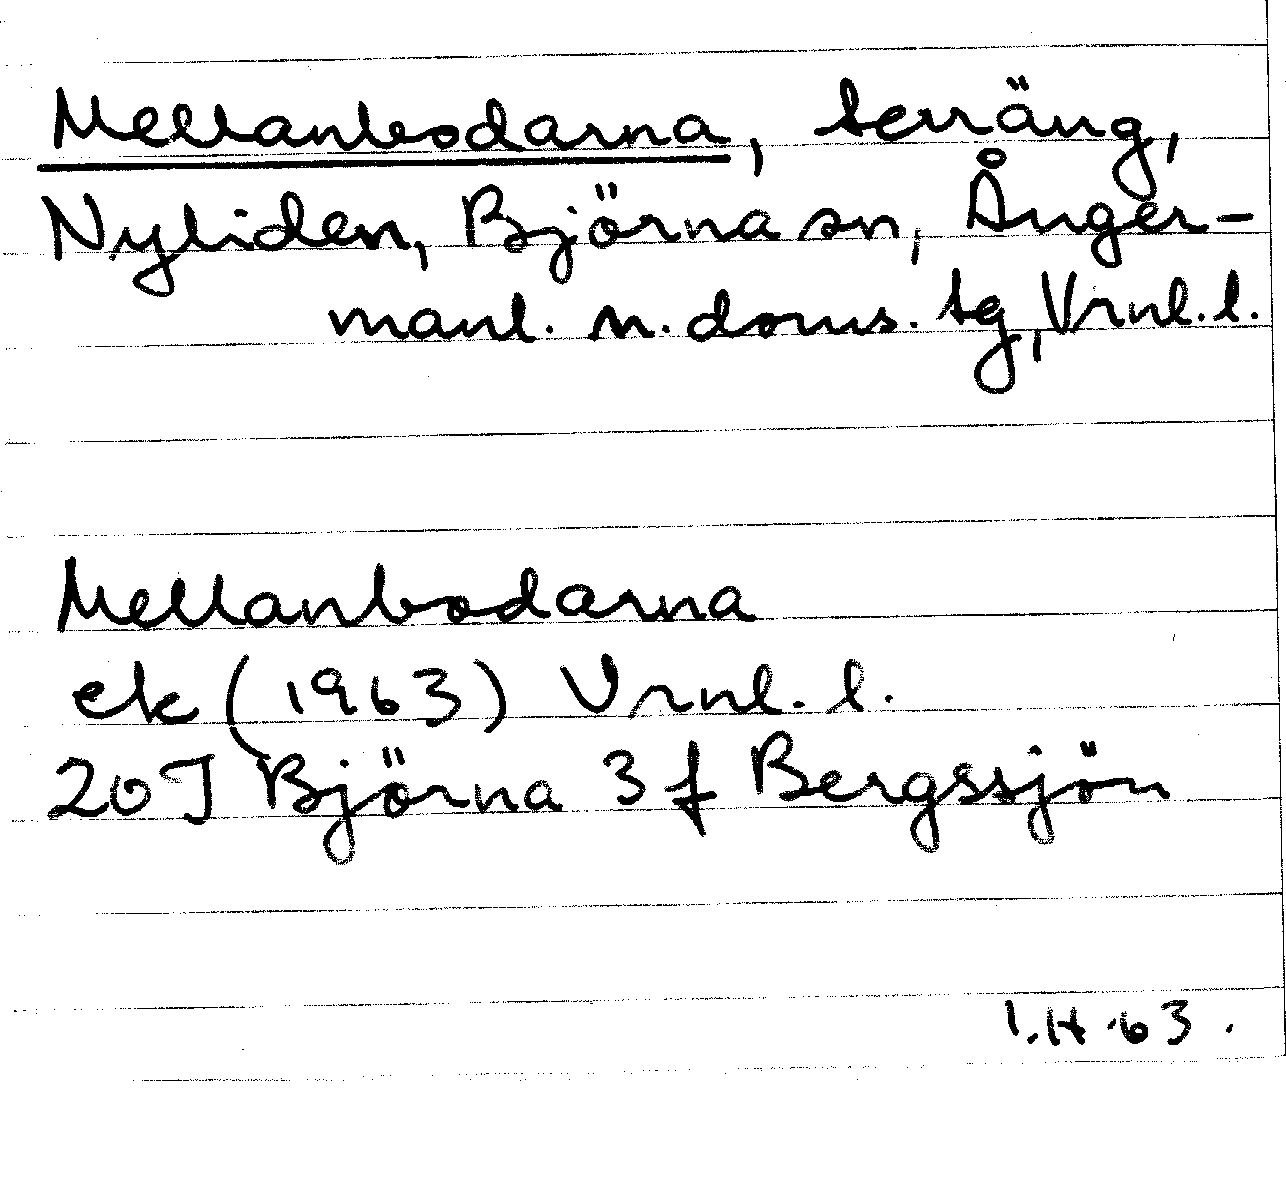 Mellanbodarna, terräng,
Nyliden, Björna sn, Ånger-
manl. n. doms. tg, Vrnl. l.
Mellanbodarna
ek (1963) Vrnl. l.
20J Björna 3 f Bergssjön
I.H. 63.